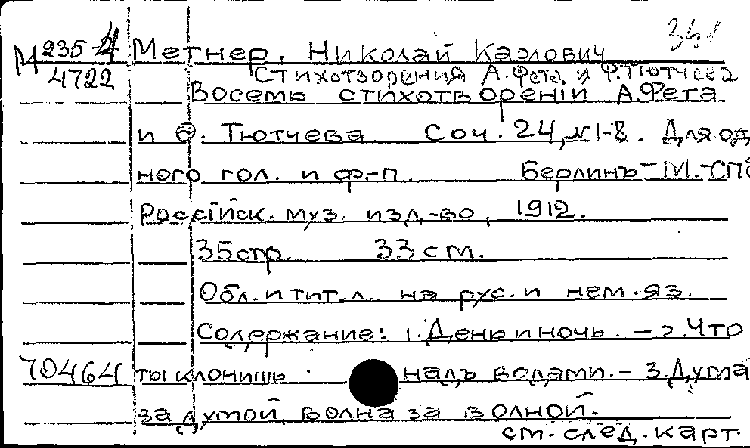 341
М 235-4 Метнер, Николай Карлович
4722 Стихотворения А. Фета и Ф. Тютчева
Восемь стихотвореній А. Фета
и Ѳ. Тютчева Соч. 24, №1-8. Для од
ного гол. и ф-п. Берлинъ-М.-СПб
Россійск. муз. изд-во, 1912.
35 стр. 33 см.
Обл. и тит. л. на рус. и нем. яз.
Содержание: 1. День и ночь. - 2. Что
70464 ты клонишь надъ водами. - 3. Дума
за думой, волна за волной.
см. след. карт.